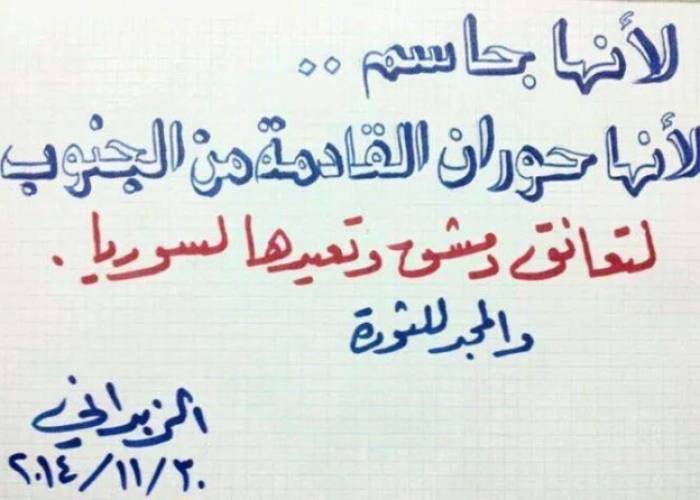 لأنها جاسم ..
لأنها حوران القادمة من الجنوب
لتعانق دمشق وتعيدها لسوريا .
والمجد للثورة
الزبداني
٢٠١٤/١١/٣٠